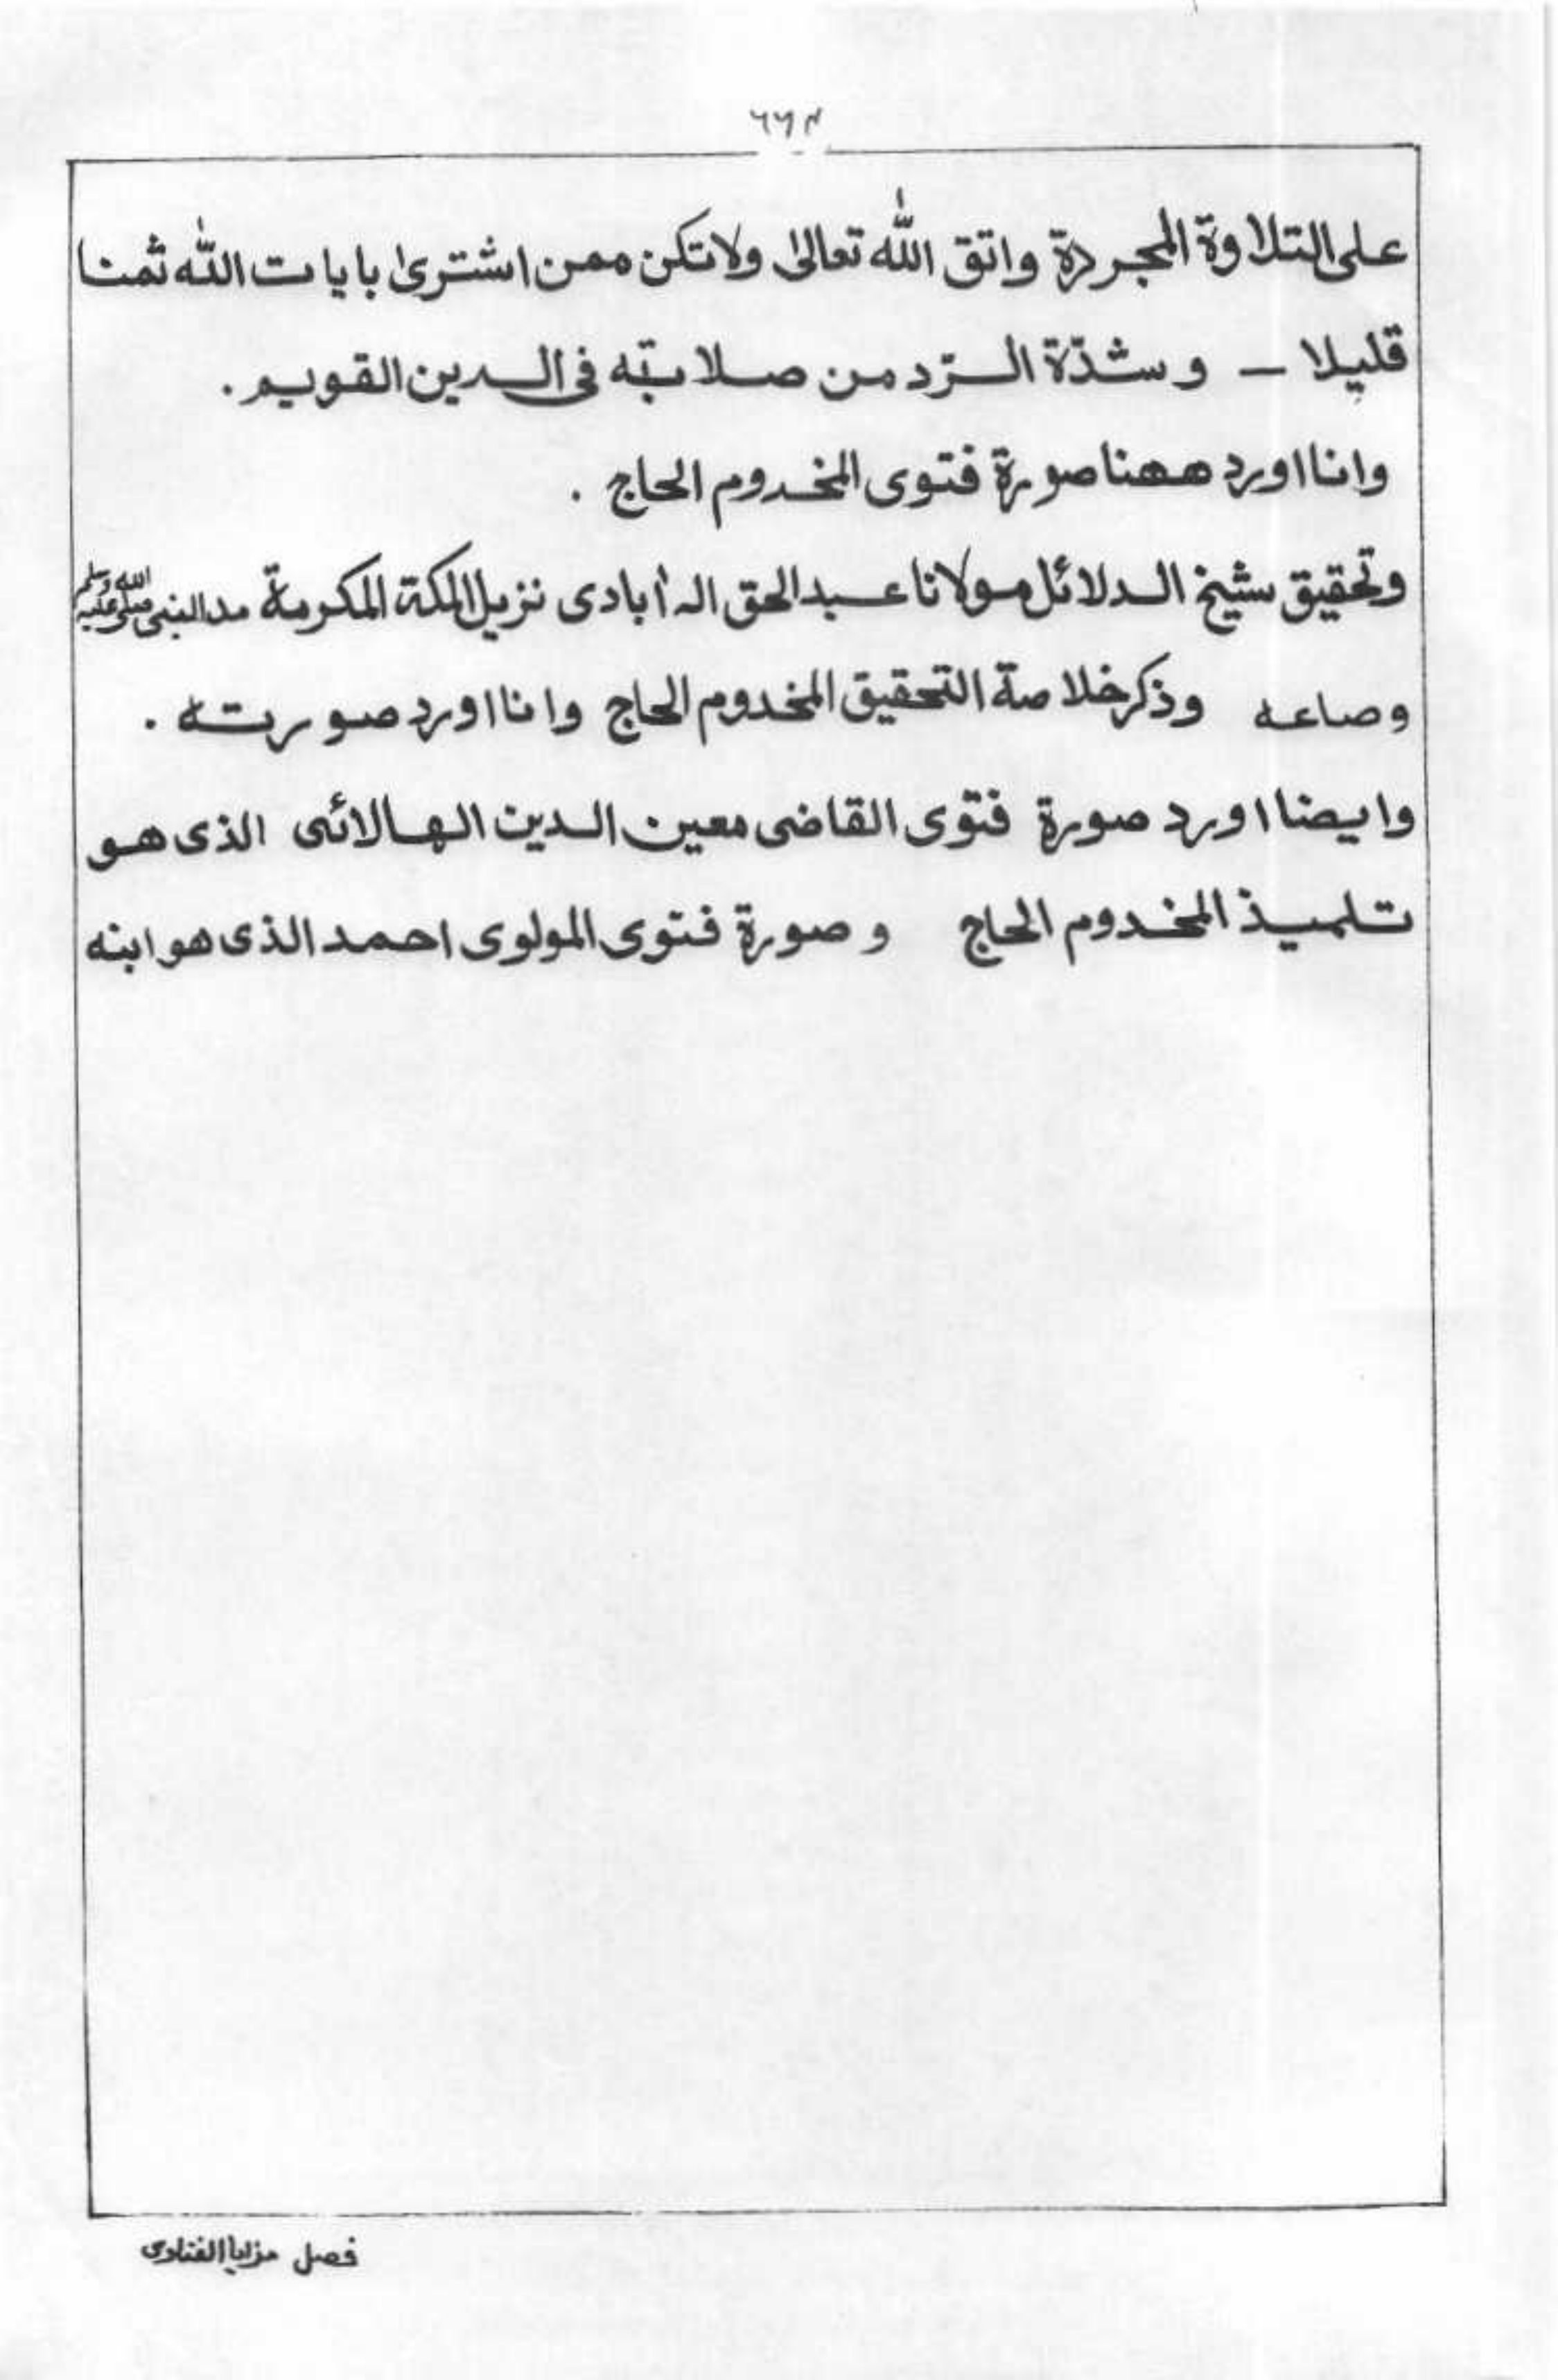 ۶۶۴
على التلاوة المجردة واتق الله تعالىٰ ولا تكن ممن اشترىٰ بايات الله ثمنا
قليلا – وشدّة الرّد من صلابته فى الدين القويم .
وانا اورد ههنا صورة فتوى المخدوم الحاج .
وتحقيق شيخ الدلائل مولانا عبد الحق الہ أبادى نزيل المكة المكرمة مد النبى صلى الله عليه وسلم
وصاعه وذكر خلاصة التحقيق المخدوم الحاج وانا اورد صورته .
وايضا اورد صورة فتوى القاضى معين الدين الهالائى الذى هو
تلميذ المخدوم الحاج و صورة فتوى المولوى احمد الذى هو ابنه
فصل مزايا الفتاوى